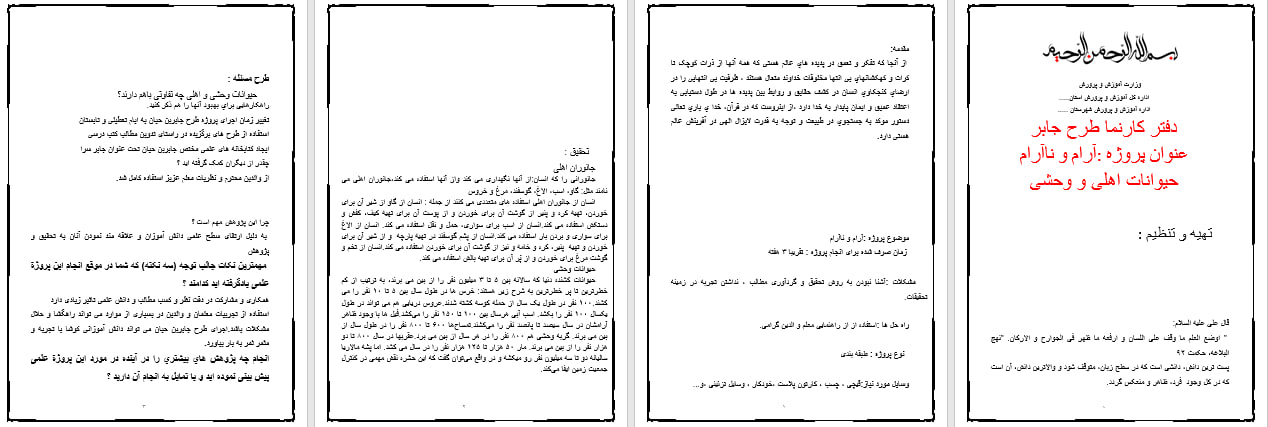 بسم الله الرحمن الرحیم
وزارت آموزش و پرورش
اداره کل آموزش و پرورش استان.....
اداره آموزش و پرورش شهرستان .....
دفتر کارنما طرح جابر
عنوان پروژه :آرام و ناآرام
حیوانات اهلی و وحشی
تهیه و تنظیم :
قال علی علیه السلام:
" اوضع العلم ما وقف علی اللسان و ارفعه ما ظهر فی الجوارح و الارکان. "نهج
البلاغه، حکمت ۹۲
پست ترین دانش، دانشی است که در سطح زبان، متوقف شود و والاترین دانش، آن است
که در کل وجود فرد، ظاهر و منعکس گردد.
مقدمه:
از آنجا که تفکر و تعمق در پدیده های عالم هستی که همه آنها از ذرات کوچک تا
کرات و کهکشانهای بی انتها مخلوقات خداوند متعال هستند ، ظرفیت بی انتهایی را در
ارضای کنجکاوی انسان در کشف حقایق و روابط بین پدیده ها در طول دستیابی به
اعتقاد عمیق و ایمان پایدار به خدا دارد ،از اینروست که در قرآن، خدا ی باری تعالی
دستور موکد به جستجوی در طبیعت و توجه به قدرت لایزال الهی در آفرینش عالم
هستی دارد.
موضوع پروژه :آرام و ناآرام
زمان صرف شده برای انجام پروژه : تقریبا ۳ هفته
مشکلات :آشنا نبودن به روش تحقیق و گردآوری مطالب ، نداشتن تجربه در زمینه
تحقیقات.
راه حل ها :استفاده از از راهنمایی معلم و الدین گرامی.
نوع پروژه : طبقه بندی
وسایل مورد نیاز:قیچی ، چسب ، کارتون پلاست ،خودکار ، وسایل تزئینی ،و...
تحقیق :
جانوران اهلی
جانورانی را که انسان:از آنها نگهداری می کند واز آنها استفاده می کند،جانوران اهلی می
نامند مثل: گاو، اسب، الاغ، گوسفند، مرغ و خروس
انسان از جانوران اهلی استفاده های متعددی می کنند از جمله : انسان از گاو از شیر آن برای
خوردن، تهیه کره و پنیر از گوشت آن برای خوردن و از پوست آن برای تهیه کیف، کفش و
دستکش استفاده می کند.انسان از اسب برای سواری، حمل و نقل استفاده می کند. انسان از الاغ
برای سواری و بردن بار استفاده می کند.انسان از پشم گوسفند در تهیه پارچه و از شیر آن برای
خوردن و تهیه پنیر، کره و خامه و نیز از گوشت آن برای خوردن استفاده می‌کند.انسان از تخم و
گوشت مرغ برای خوردن و از پُر آن برای تهیه بالش استفاده می کند.
حیوانات وحشی
حیوانات کشنده دنیا که سالانه بین ۵ تا ۳ میلیون نفر را از بین می برند، به ترتیب از کم
خطرترین تا پر خطرترین به شرح زیر هستند: خرس ها در طول سال بین ۵ تا ۱۰ نفر را می
کشند.۱۰۰ نفر در طول یک سال از حمله کوسه کشته شدند.عروس دریایی هم می تواند در طول
یکسال ۱۰۰ نفر را بکشد. اسب آبی هرسال بین ۱۰۰ تا ۱۵۰ نفر را می‌کشد.فیل ها با وجود ظاهر
آرامشان در سال سیصد تا پانصد نفر را می‌کشند.تمساح‌ها ۶۰۰ تا ۸۰۰ نفر را در طول سال از
بین می برند. گربه وحشی هم ۸۰۰ نفر را در هر سال از بین می برد.عقربها در سال ۸۰۰ تا دو
هزار نفر را از بین می برند. مار ۵۰ هزار تا ۱۲۵ هزار نفر را در سال می کشد. اما پشه مالاریا
سالیانه دو تا سه میلیون نفر رو میکشه و در واقع می‌توان گفت که این حشره نقش مهمی در کنترل
جمعیت زمین ایفا می‌کند.
۲
طرح مسئله :
حیوانات وحشی و اهلی چه تفاوتی باهم دارند؟
راهکارهایی برای بهبود آنها را هم ذکر کنید.
تغییر زمان اجرای پروژه طرح جابربن حیان به ایام تعطیلی و تابستان
استفاده از طرح های برگزیده در راستای تدوین مطالب کتب درسی
ایجاد کتابخانه های علمی مختص جابربن حیان تحت عنوان جابر سرا
چقدر از دیگران کمک گرفته اید ؟
از والدین محترم و نظریات معلم عزیز استفاده کامل شد.
چرا این پژوهش مهم است ؟
به دلیل ارتقای سطح علمی دانش آموزان و علاقه مند نمودن آنان به تحقیق و
پژوهش
مهمترین نکات جالب توجه (سه نکته) که شما در موقع انجام این پروژة
علمی یادگرفته اید کدامند ؟
همکاری و مشارکت در دقت نظر و کسب مطالب و دانش علمی تاثیر زیادی دارد
استفاده از تجربیات معلمان و والدین در بسیاری از موارد می تواند راهگشا و حلال
مشکلات باشد.اجرای طرح جابربن حیان می تواند دانش آموزانی کوشا با تجربه و
مثمر ثمر به بار بیاورد.
انجام چه پژوهش های بیشتری را در آینده در مورد این پروژة علمی
پیش بینی نموده اید و یا تمایل به انجام آن دارید ؟
۳